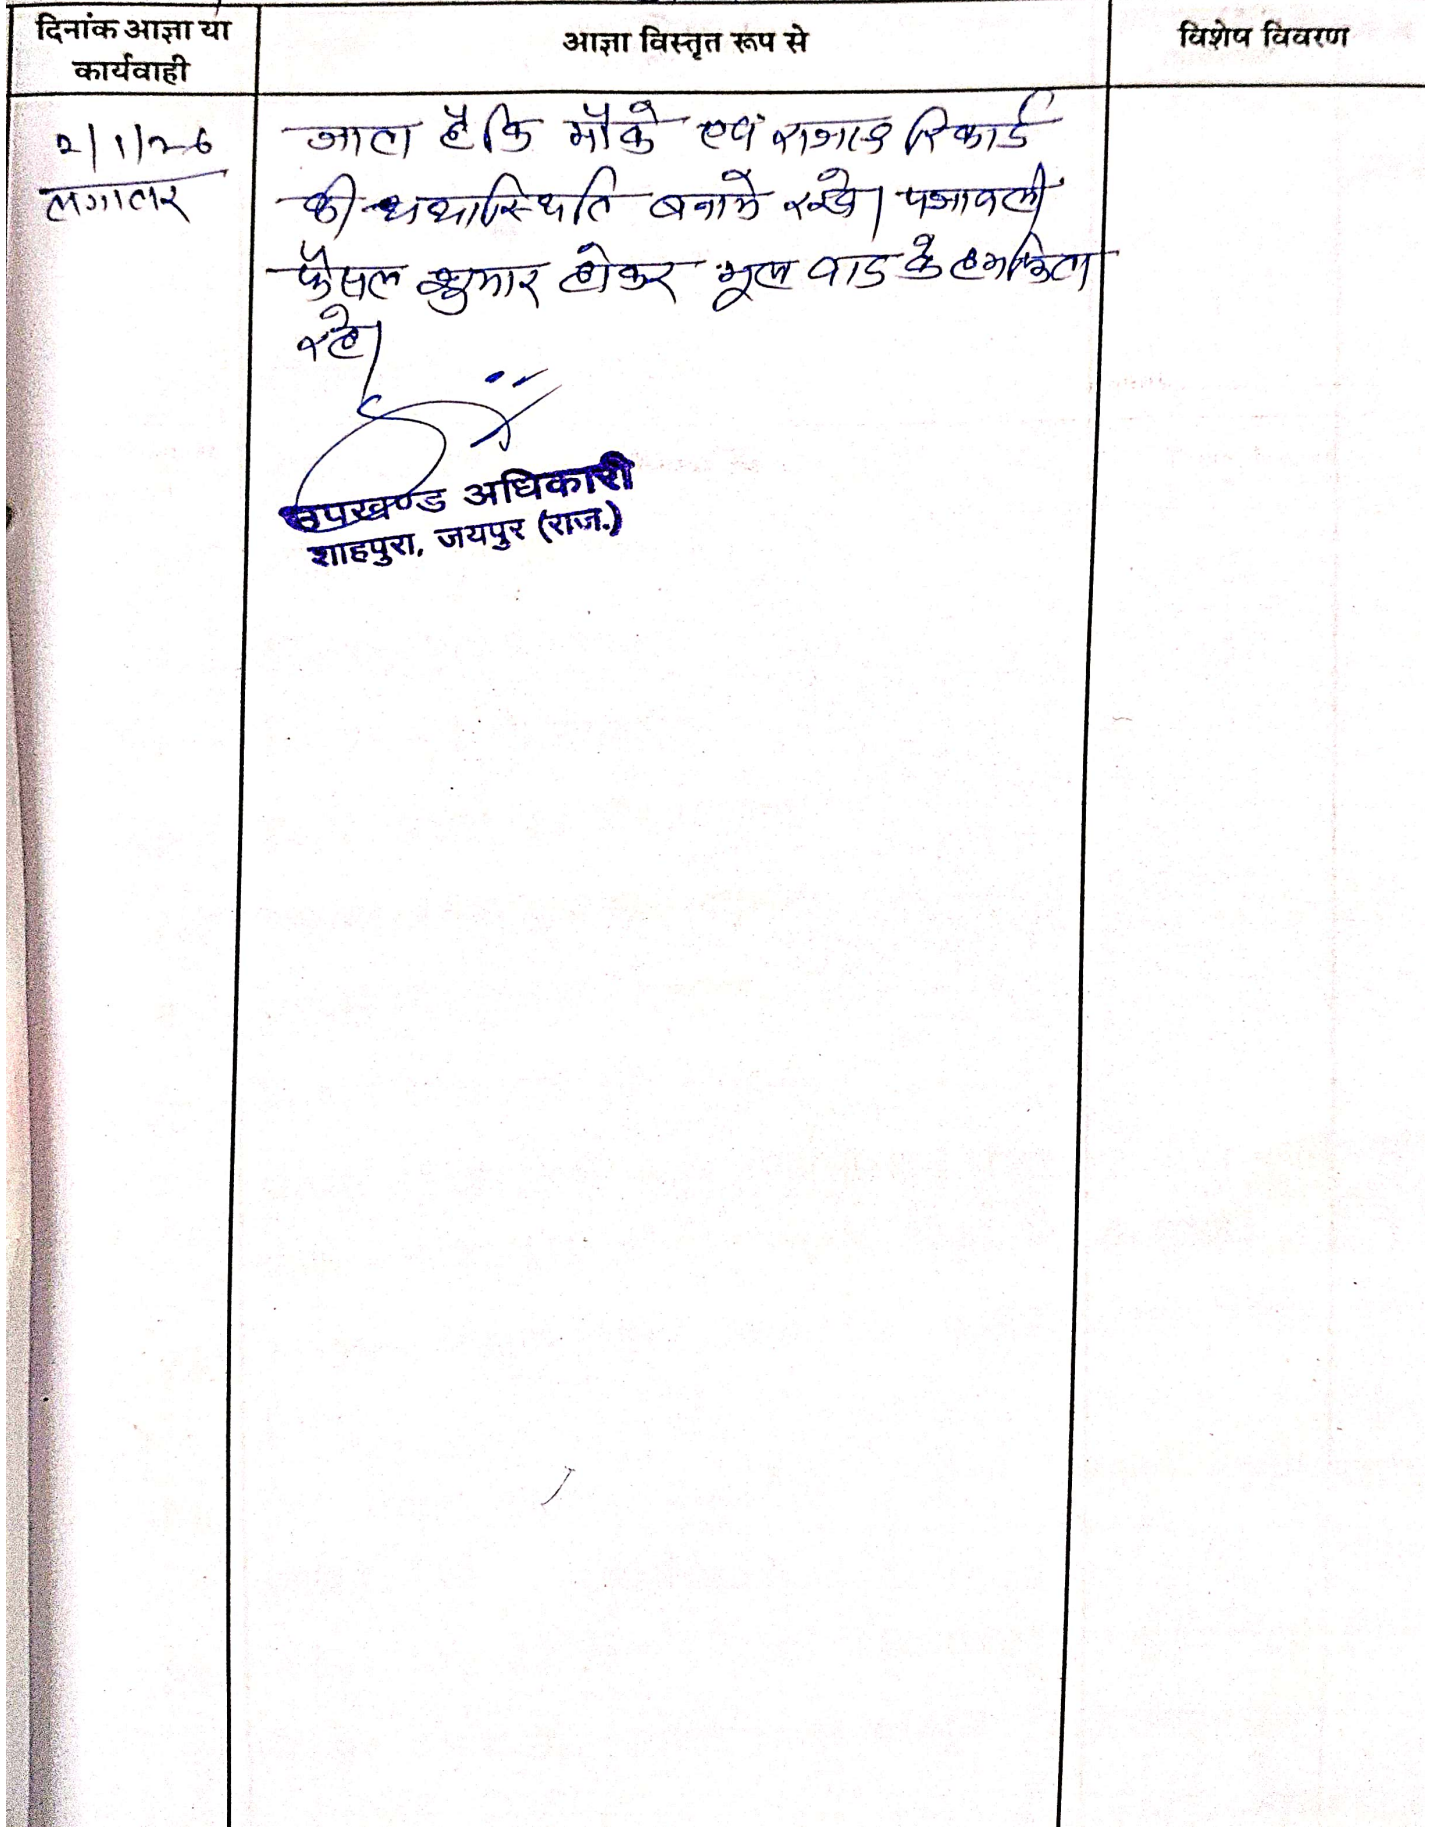 दिनांक आज्ञा या
कार्यवाही
आज्ञा विस्तृत रूप से
विशेष विवरण
2/1/26
लगातार
जाता है कि मौके एवं राजस्व रिकार्ड
की यथास्थिति बनाये रखे। पत्रावली
फैसल शुमार होकर मूल वाद के हमकिता
रहे।
उपखण्ड अधिकारी
शाहपुरा, जयपुर (राज.)